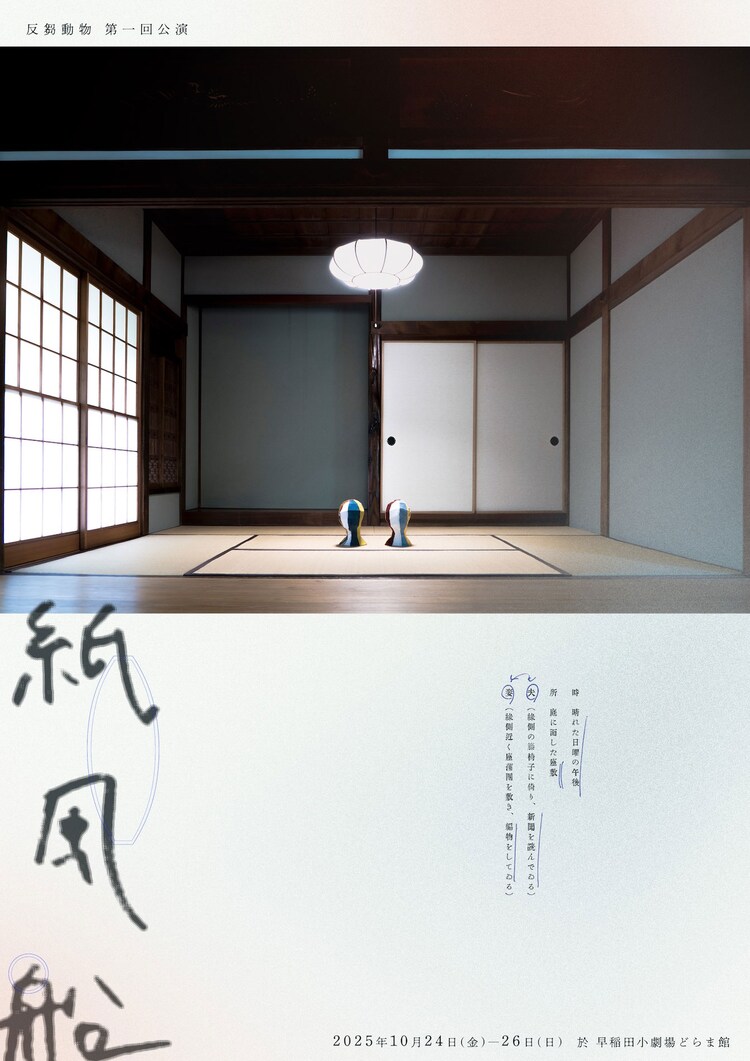 反芻動物 第一回公演
紙風船
時 晴れた日曜の午後
所 庭に面した座敷
夫(縁側の籐椅子に倚り、新聞を読んでゐる)
妻(縁側近く座蒲団を敷き、編物をしてゐる)
2025年10月24日(金)—26日(日) 於 早稲田小劇場どらま館